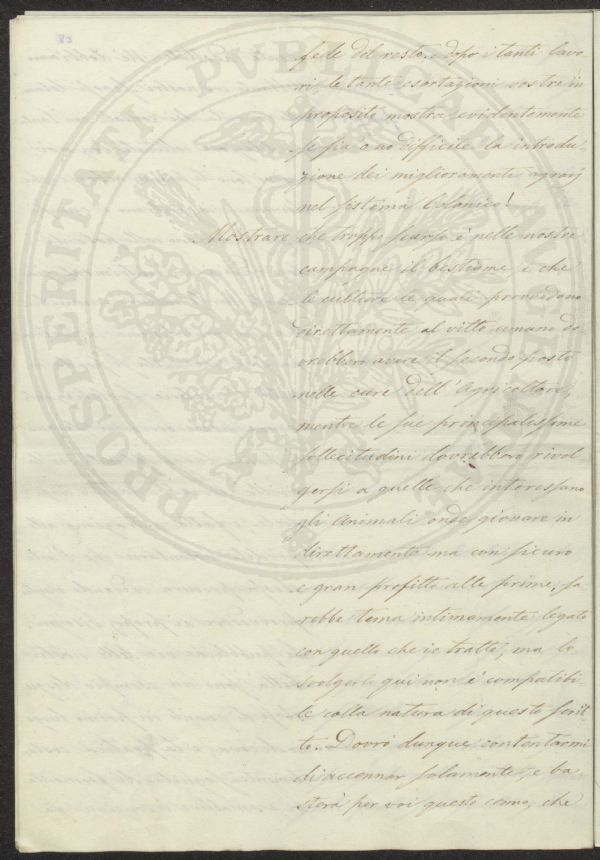 fede del resto, e dopo i tanti lavo
ri, le tante esortazioni vostre in
proposito mostra evidentemente
se sia o nò difficile la introdu-
zione dei miglioramenti agrarj
nel sistema Colonico!
Mostrare che troppo scarso è nelle nostre
campagne il bestiame e che
le culture le quali provvedono
direttamente al vitto umano do
vrebbero avere il secondo posto
nelle cure dell'Agricoltore,
mentre le sue principalissime
sollecitudini dovrebbero rivol
gersi a quelle che interessano
gli animali onde giovare in
direttamente ma con sicuro
e gran profitto alle prime, sa
rebbe tema intimamente legato
con quello che io tratto, ma lo
svolgerlo qui non è compatibi-
le colla natura di questo scrit
to. Dovrò dunque contentarmi
di accennar solamente, e ba
sterà per voi questo cenno, che
PROSPERITATI PVBLICAE AVGENDAE